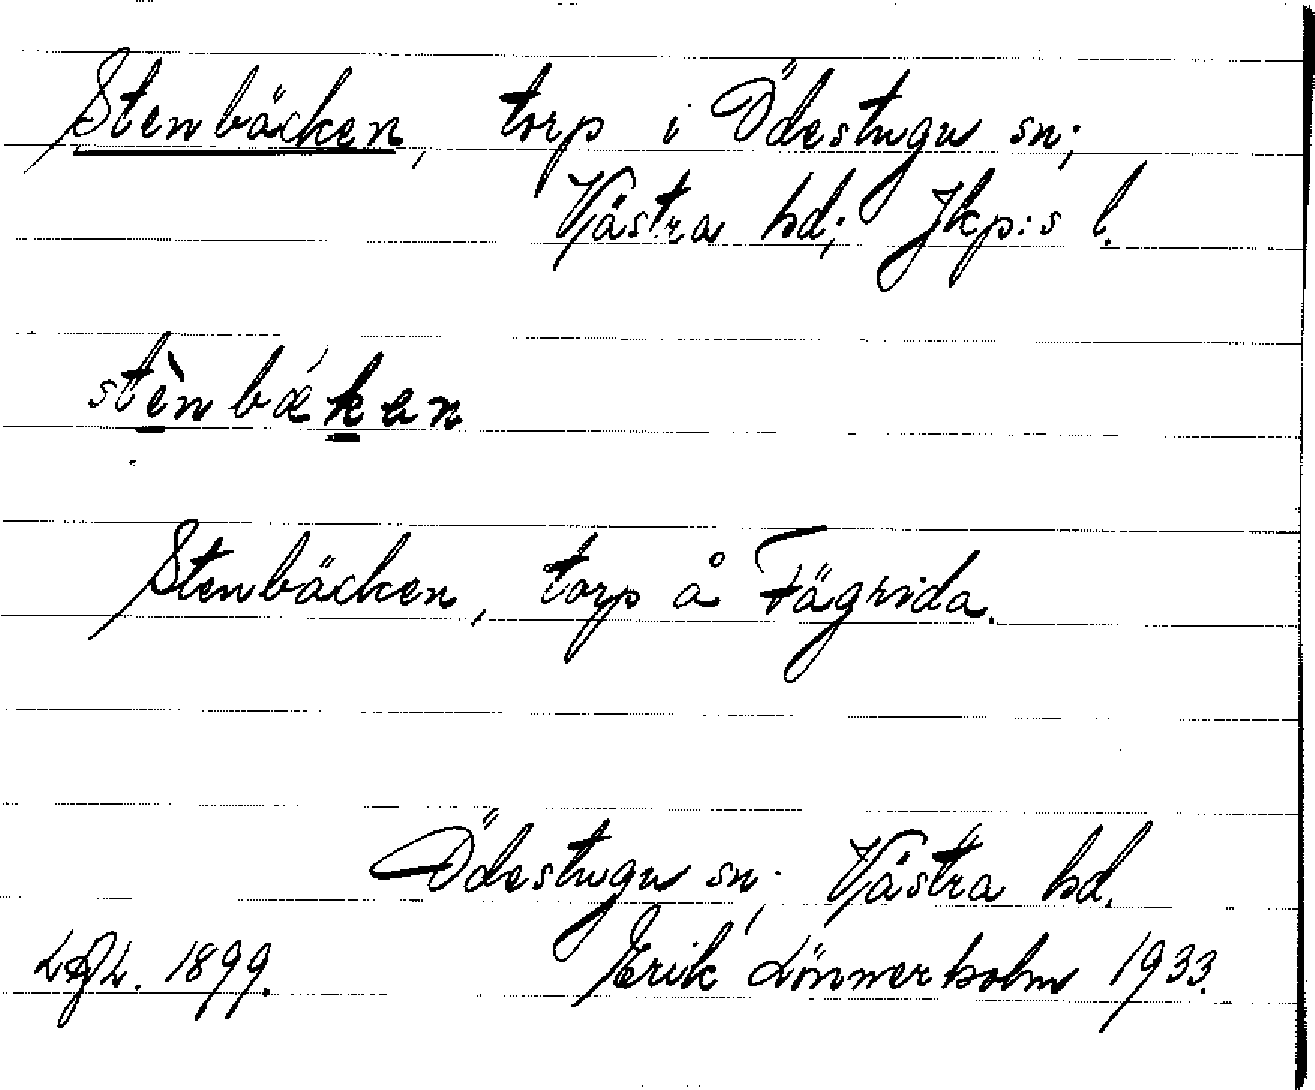 Stenbäcken, torp i Ödestugu sn;
Västra hd; Jkp:s l.
stènbǽken
Stenbäcken, torp å Fägrida.
Ödestugu sn; Västra hd.
1899. Erik Lönnerholm 1933.